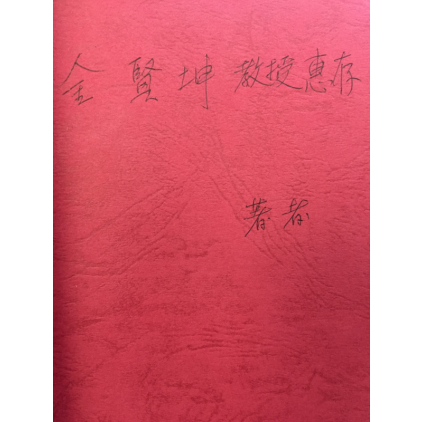 金 賢 坤 教授惠存
著者